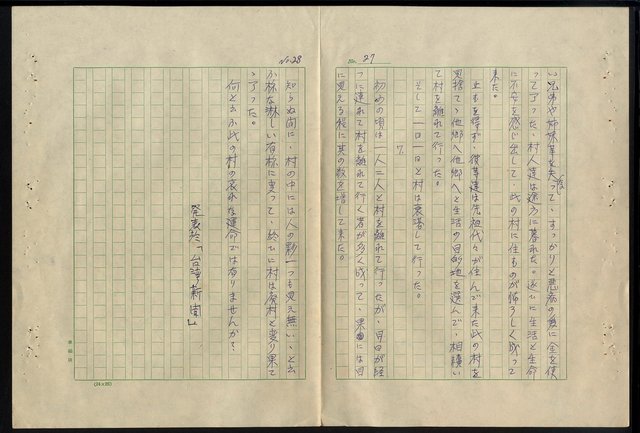 No. 27
い兄弟や姉妹等を失って、すっかりと悲喜の為に金を使
って了った。村人達は途方に暮れた。遂に生活と生命
に不安を感じ出して、此の村に住むのが恐ろしく成って
来た。
止むを得ず、彼等達は先祖代々が住んで来た此の村を
見捨て、他郷へ他郷へと生活の目的地を選んで、相続い
て村を離れて行った。
そして一日一日と村は衰替して行った。
7.
初めの頃は一人二人と村を離れて行ったが、月日が経
つに連れて村を離れて行く者が多く成って、果には目
に見える程に其の数を増して来た。
No. 28
知らぬ間に、村の中には人の影一つも見え無い、と云
ふ様な淋しい有様に変って、終ひに村は廃村と変り果て
ゝ了った。
何と云ふ此の村の哀れな運命では有りませんか？
発表於「台湾新聞」
(24×25)